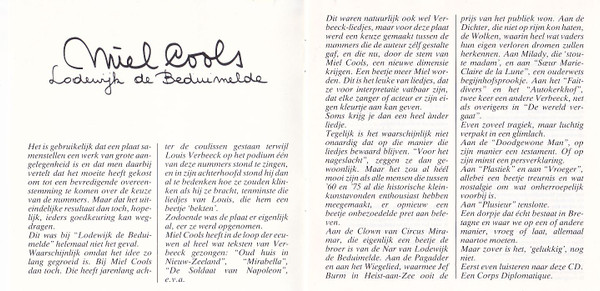 Miel Cools
Lodewijk de Beduimelde
Het is gebruikelijk dat een plaat sa-
menstellen een werk van grote aan-
gelegenheid is en dat men daarbij
vertelt dat het moeite heeft gekost
om tot een bevredigende overeen-
stemming te komen over de keuze
van de nummers. Maar dat het uit-
eindelijke resultaat dan toch, hope-
lijk, ieders goedkeuring kan weg-
dragen.
Dit was bij "Lodewijk de Bedui-
melde" helemaal niet het geval.
Waarschijnlijk omdat het idee zo
lang gegroeid is. Bij Miel Cools
dan toch. Die heeft jarenlang ach-
ter de condissen gestaan terwijl
Louis Verbeeck op het podium één
van deze nummers stond te zingen,
en in zijn achterhoofd stond hij dan
al te bedenken hoe ze zouden klin-
ken als hij ze bracht, tenminste die
liedjes van Louis, die hem een
beetje 'bekten'.
Zodoende was de plaat er eigenlijk
al, eer ze werd opgenomen.
Miel Cools heeft in de loop der eeu-
wen al heel wat teksten van Ver-
beeck gezongen: "Oud huis in
Nieuw-Zeeland", "Mirabella",
"De Soldaat van Napoleon",
e.v.a.
Dit waren natuurlijk ook wel Ver-
beeck-liedjes, maar voor deze plaat
werd een keuze gemaakt tussen de
nummers die de auteur zélf gestalte
gaf, en die nu, door de stem van
Miel Cools, een nieuwe dimensie
krijgen. Een beetje meer Miel wor-
den. Dit is het leuke van liedjes, dat
ze voor interpretatie vatbaar zijn,
dat elke zanger of acteur er zijn ei-
gen kleurtje aan kan geven.
Soms krijg je dan een heel ànder
liedje.
Tegelijk is het waarschijnlijk niet
onaardig dat op die manier die
liedjes bewaard blijven. "Voor het
nageslacht", zeggen ze dan ge-
woonlijk. Maar het zou al héél
mooi zijn als alle mensen die tussen
'60 en '75 al die historische klein-
kunstavonden enthousiast hebben
meegemaakt, er opnieuw een
beetje onbezoedelde pret aan bele-
ven.
Aan de Clown van Circus Mira-
mar, die eigenlijk een beetje de
broer is van de Nar van Lodewijk
de Beduimelde. Aan de Pagadder
en aan het Wiegelied, waarmee Jef
Burm in Heist-aan-Zee ooit de
prijs van het publiek won. Aan de
Dichter, die niet op rijm kon haten,
de Wolken, waarin heel wat vaders
hun eigen verloren dromen zullen
herkennen. Aan Milady, die 'stou-
te madam', en aan "Sœur Marie-
Claire de la Lune", een ouderwets
begijnhofsprookje. Aan het "Fair-
divers" en het "Autokerkhof",
twee keer een andere Verbeeck, net
als overigens in "De wereld ver-
gaat".
Even zoveel tragiek, maar luchtig
verpakt in een glimlach.
Aan de "Doodgewone Man", op
zijn manier een testament. Of op
zijn minst een persverklaring.
Aan "Plastiek" en aan "Vroeger",
allebei een beetje treurnis en wat
nostalgie om wat onherroepelijk
voorbij is.
Aan "Plusieur" tenslotte.
Een dorpje dat écht bestaat in Bre-
tagne en waar we op een of andere
manier, vroeg of laat, allemaal
naartoe moeten.
Maar zover is het, 'gelukkig', nog
niet.
Eerst even luisteren naar deze CD.
Een Corps Diplomatique.